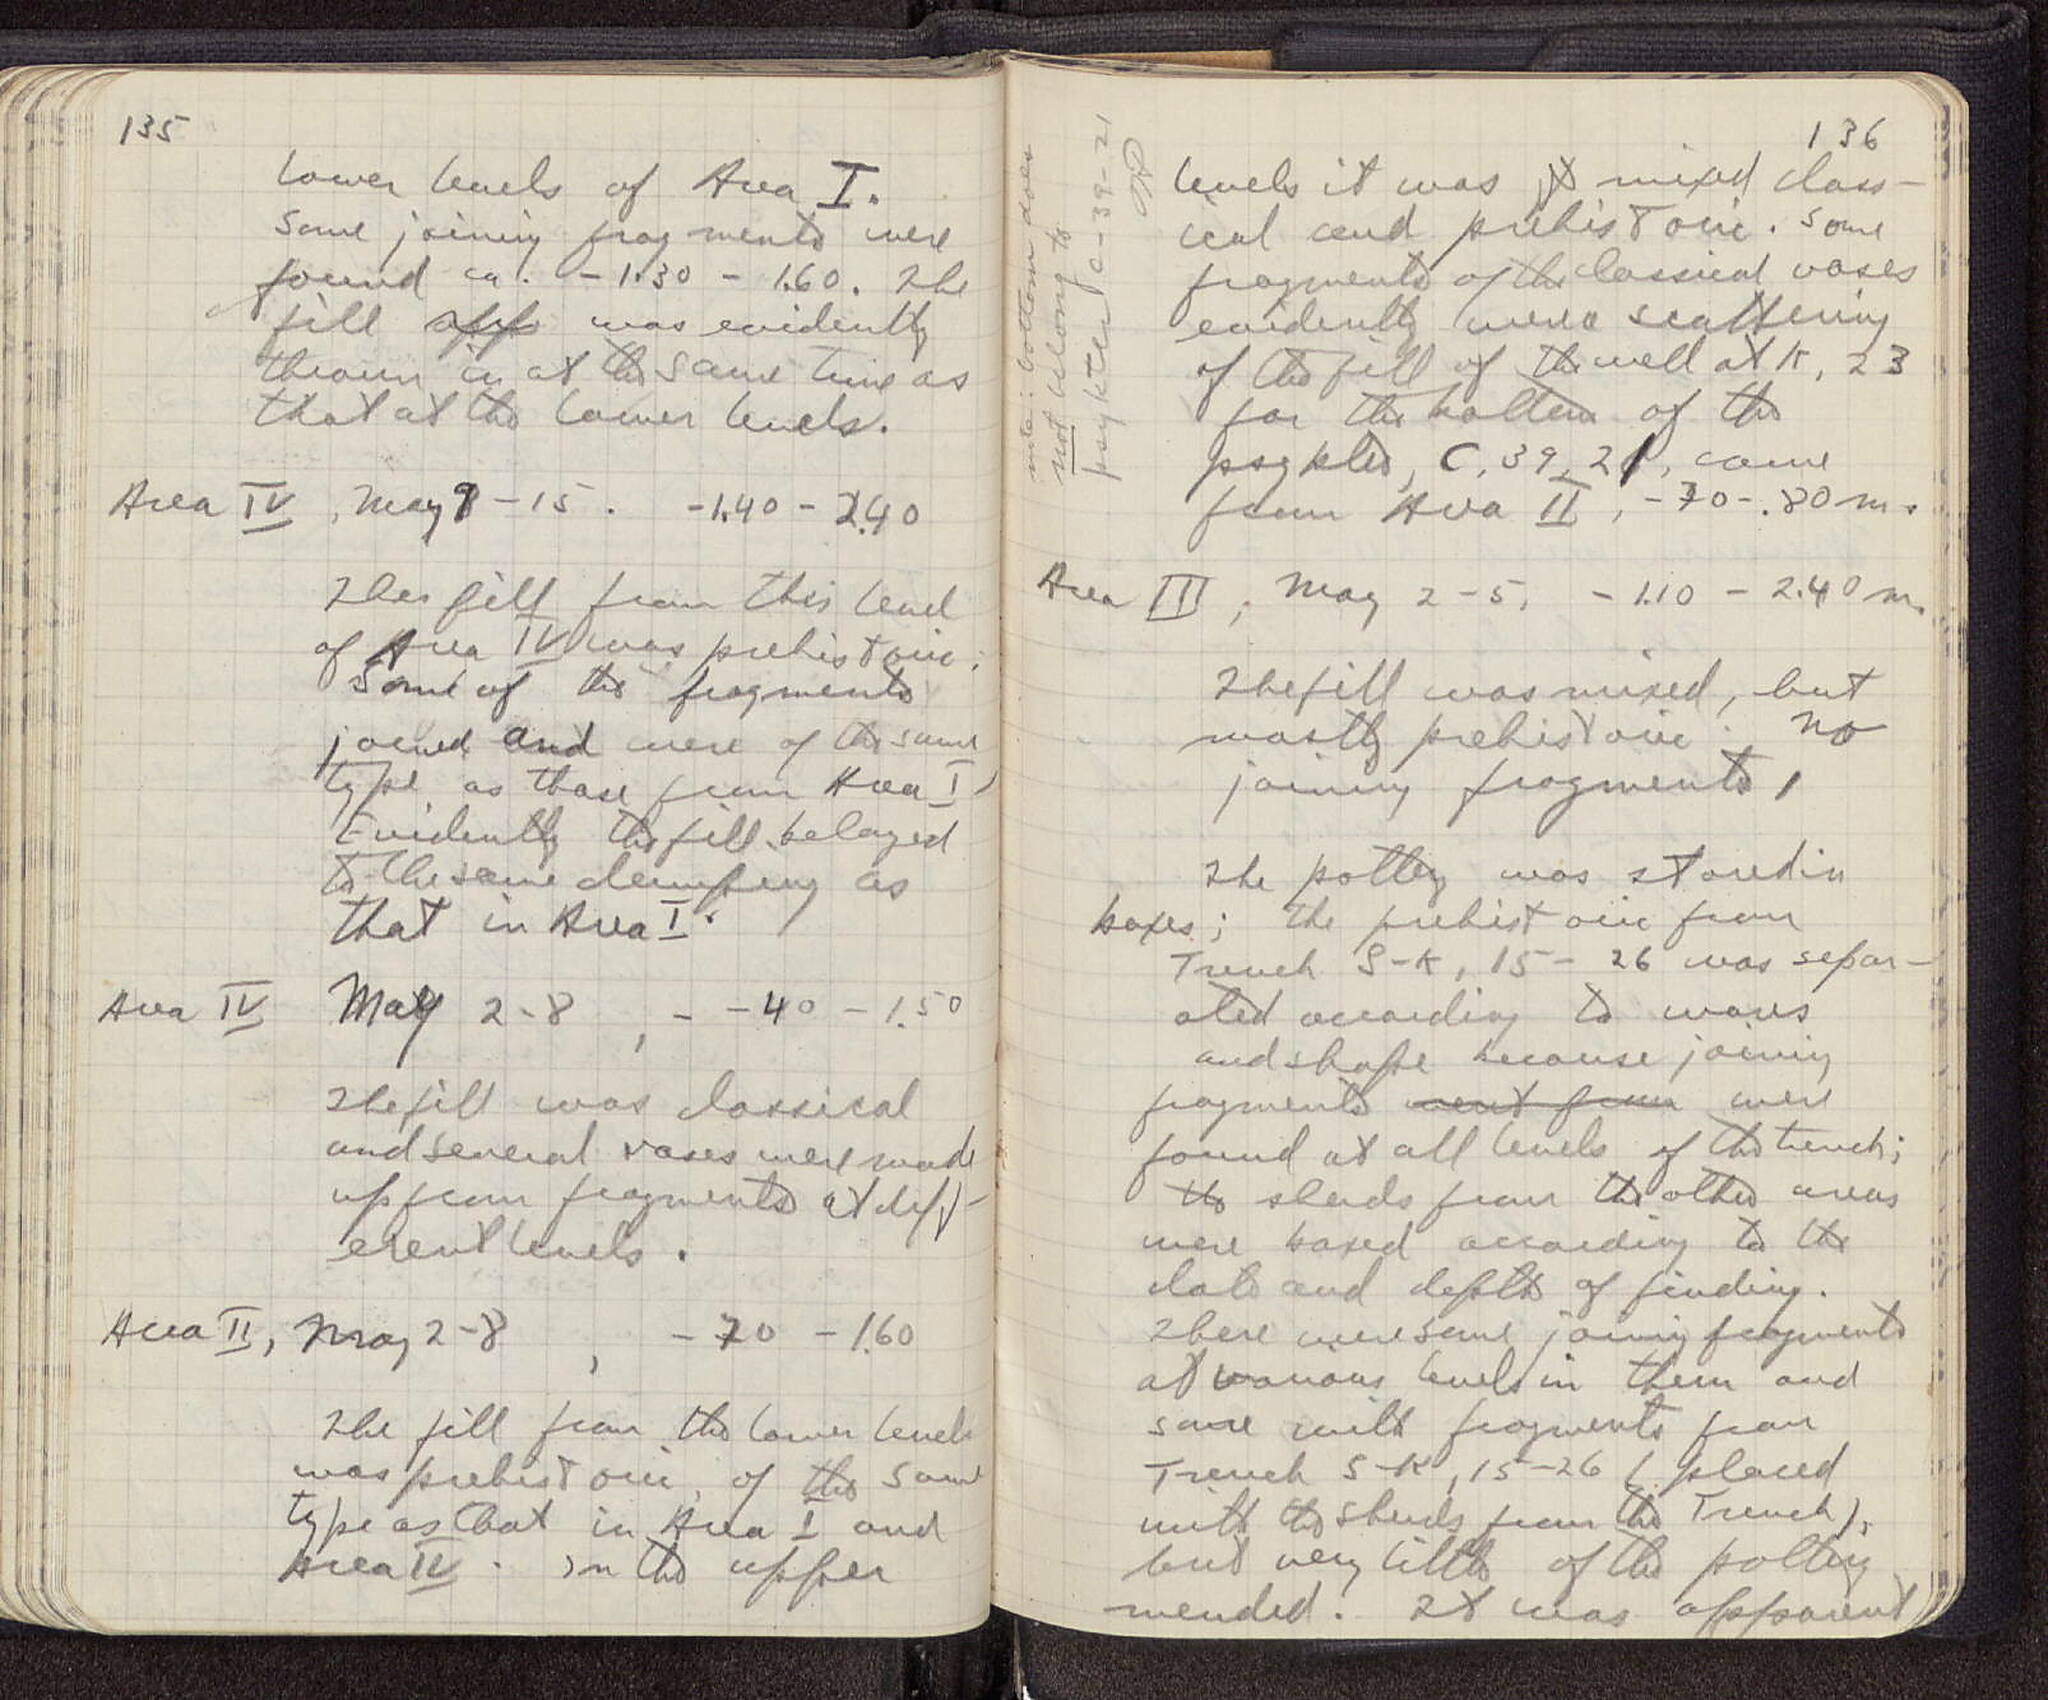 135
lower levels of Area I.
Some joining fragments were
found ca. -1.30 - 1.60. The
fill app was evidently
thrown in at the same time as
that at the lower levels.
Area IV, May 9-15. -1.40 - 2.40
The fill from this level
of Area IV was prehistoric.
Some of the fragments
joined and were of the same
type as those from Area I,
Evidently the fill belonged
to the same dumping as
that in Area I.
Area IV May 2-8, - -40 - 1.50
The fill was classical
and several vases were made
up from fragments at diff-
erent levels.
Area II, May 2-8, -70 - 1.60
The fill from the lower levels
was prehistoric, of the same
type as that in Area I and
Area IV. In the upper
136
note: bottom does
not belong to
psykter C-39-21
levels it was mixed class-
ical and prehistoric. Some
fragments of the classical vases
evidently were a scattering
of the fill of the well at K, 23
for the bottom of the
psykter, C, 39, 21, came
from Area II, -70-.80 m.
Area III, May 2-5, -1.10 - 2.40 m.
The fill was mixed, but
mostly prehistoric. No
joining fragments,
The pottery was stored in
boxes; the prehistoric from
Trench S-K, 15-26 was separ-
ated according to wares
and shape because joining
fragments went from were
found at all levels of the trench;
the sherds from the other areas
were boxed according to the
date and depth of finding.
There were some joining fragments
at various levels in them and
some with fragments from
Trench S-K, 15-26 (placed
with the sherds from the Trench),
but very little of the pottery
mended. It was apparent